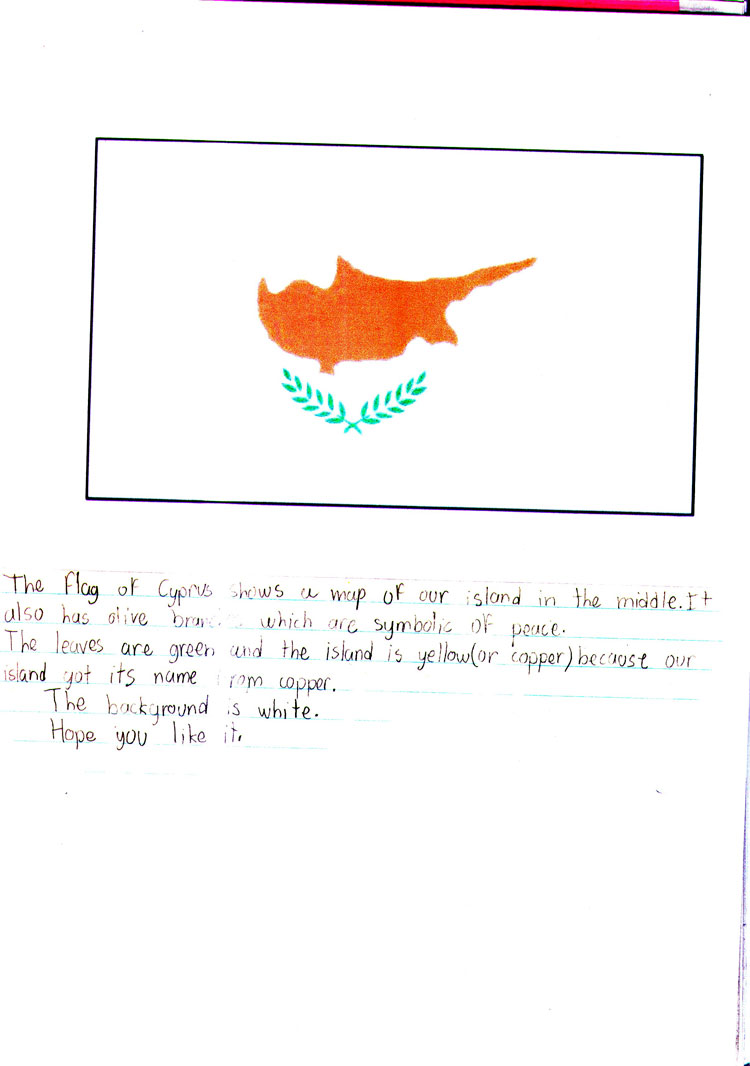 The flag of Cyprus shows a map of our island in the middle. It
also has olive which are symbolic of peace.
The leaves are green and the island is yellow (or copper) because our
island got its name from copper.
The background is white.
Hope you like it.